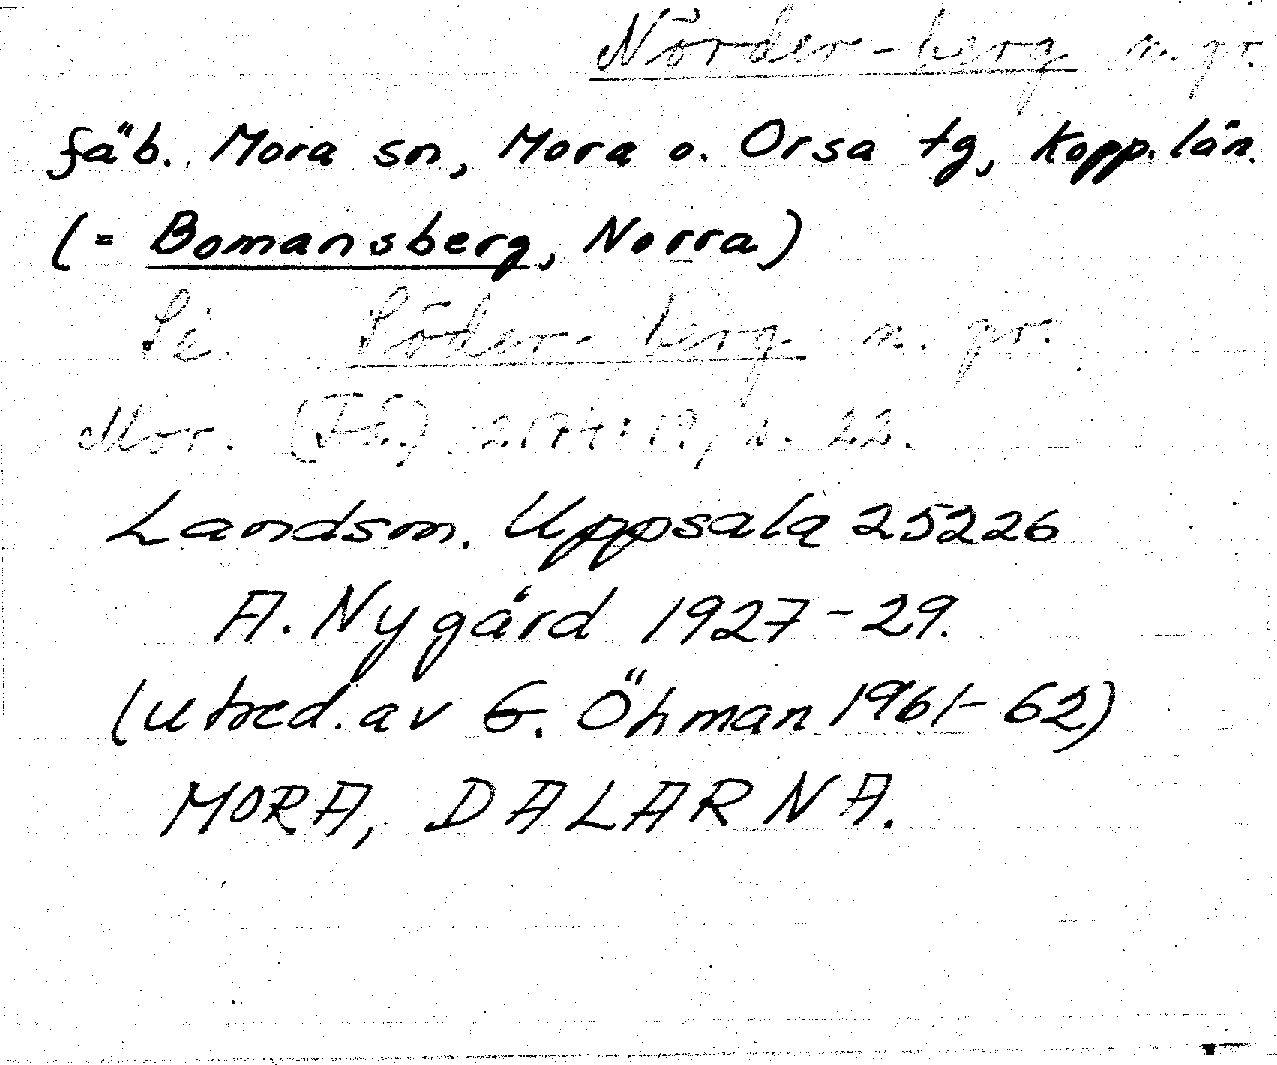 Nörder-berg n. pr.
fäb. Mora sn, Mora o. Orsa tg, Kopp. län.
(= Bomansberg, Norra)
Se Söder-berg n. pr.
Mor. s. 22.
Landsm. Uppsala 25226
A. Nygård 1927-29.
(utred. av G. Öhman 1961-62)
MORA, DALARNA.